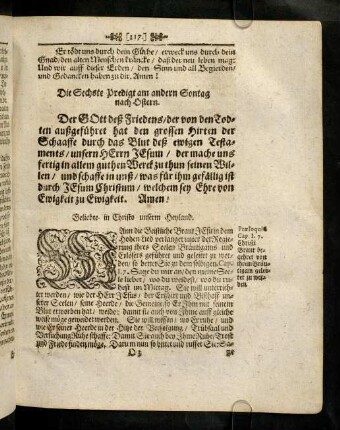 [317]
Ertödt uns durch dein Güthe / erweck uns durch dein
Gnad / den alten Menschen kräncke / daß der neu leben mag:
Und wir auff dieser Erden / den Sinn und all Begierden /
und Gedancken haben zu dir. Amen!
Die Sechste Predigt am andern Sontag
nach Ostern.
Der GOtt deß Friedens / der von den Tod-
ten außgeführet hat den grossen Hirten der
Schaaffe durch das Blut deß ewigen Testa-
ments / unsern HErrn JEsum / der mache uns
fertig in allem guthen Werck zu thun seinen Wil-
len / und schaffe in unß / was für ihm gefällig ist
durch JEsum Christum / welchem sey Ehre von
Ewigkeit zu Ewigkeit. Amen!
Beliebte in Christo unserm Heyland.
die Geistliche Braut JEsu in dem
Hohen Lied verlanget unter der Regie-
rung ihres Seelen Bräutigams und
Erlösers geführet und geleitet zu wer-
den; so betet Sie zu dem selbigen Cap.
I. 7. Sage du mir an / den meine See-
le liebet / wo du weidest / wo du ru-
hest im Mittag. Sie will unterrich-
tet werden / wie der HErr JEsus / der Ertzhirt und Bischoff unse-
rer Seelen / seine Heerde / die Gemeine so Er Ihm mit seinem
Blut erworben hat / weide: damit sie auch von Ihme auff gleiche
weise möge geweidet werden. Sie will wissen / wo Er ruhe / und
wie Er seiner Heerde in der Hitze der Verfolgung / Trübsaal und
Versuchung Ruhe schaffe: Damit Sie auch den Ihme Ruhe / Trost
und Friede finden möge. Darum nun so bittet und ruffet Sie: Sa-
Cap I. 7.
Christi
Braut be-
gehret von
ihrem Bräu-
tigam gelei-
tet zu wer-
den.